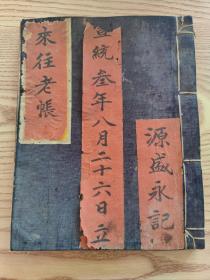 源盛永記
宣統叁年八月二十六日立
來往老帳